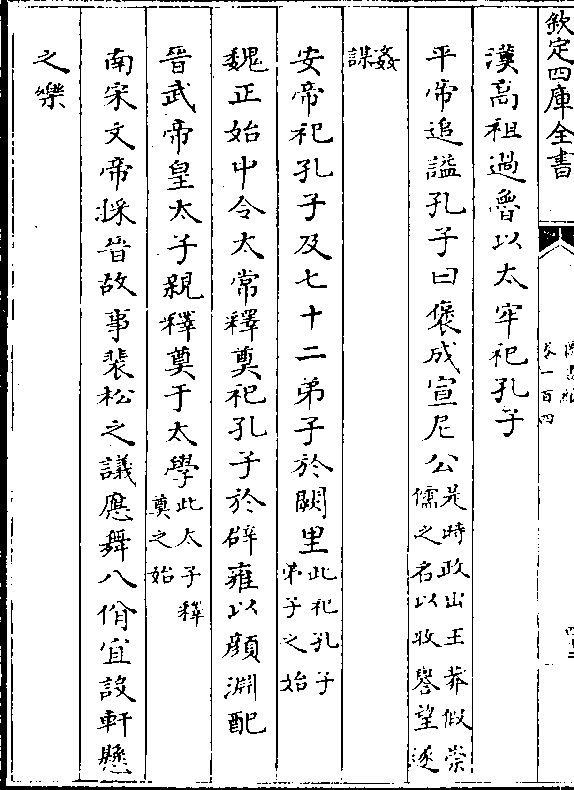 欽定四庫全書
卷一百四
漢高祖過魯以太牢祀孔子
平帝追謚孔子曰褒成宣尼公是時政出王莽假崇儒之名以收譽望遂
姦謀
安帝祀孔子及七十二弟子於闕里此祀孔子弟子之始
魏正始中令太常釋奠祀孔子於辟雍以顔淵配
晉武帝皇太子親釋奠于太學此太子釋奠之始
南宋文帝採晉故事裴松之議應舞八佾宜設軒懸
之樂